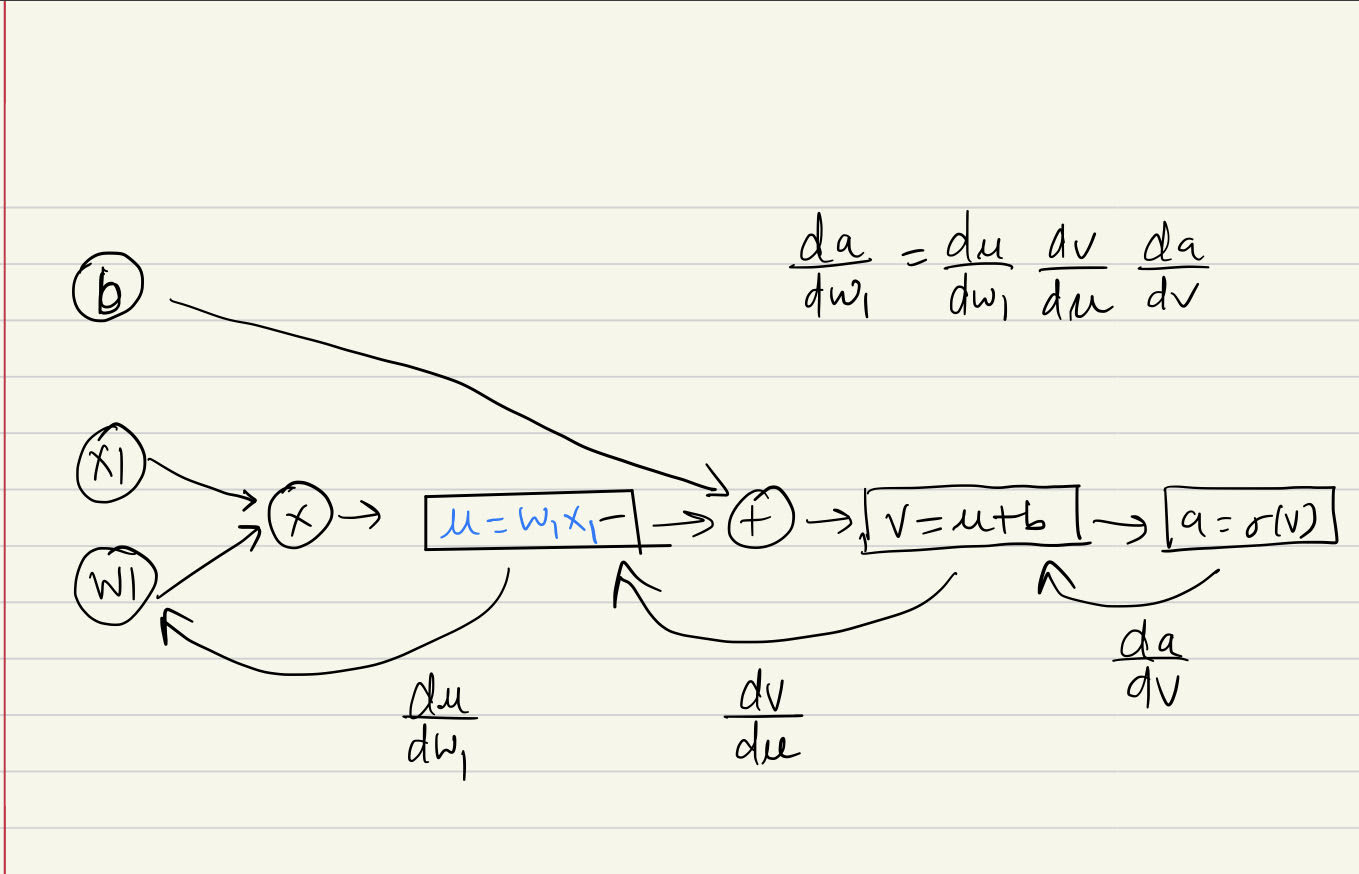 da/dw₁ = du/dw₁ dv/du da/dv
b
x1
w1
×
u = w₁x₁
+
v = u+b
a = σ(v)
du/dw₁
dv/du
da/dv